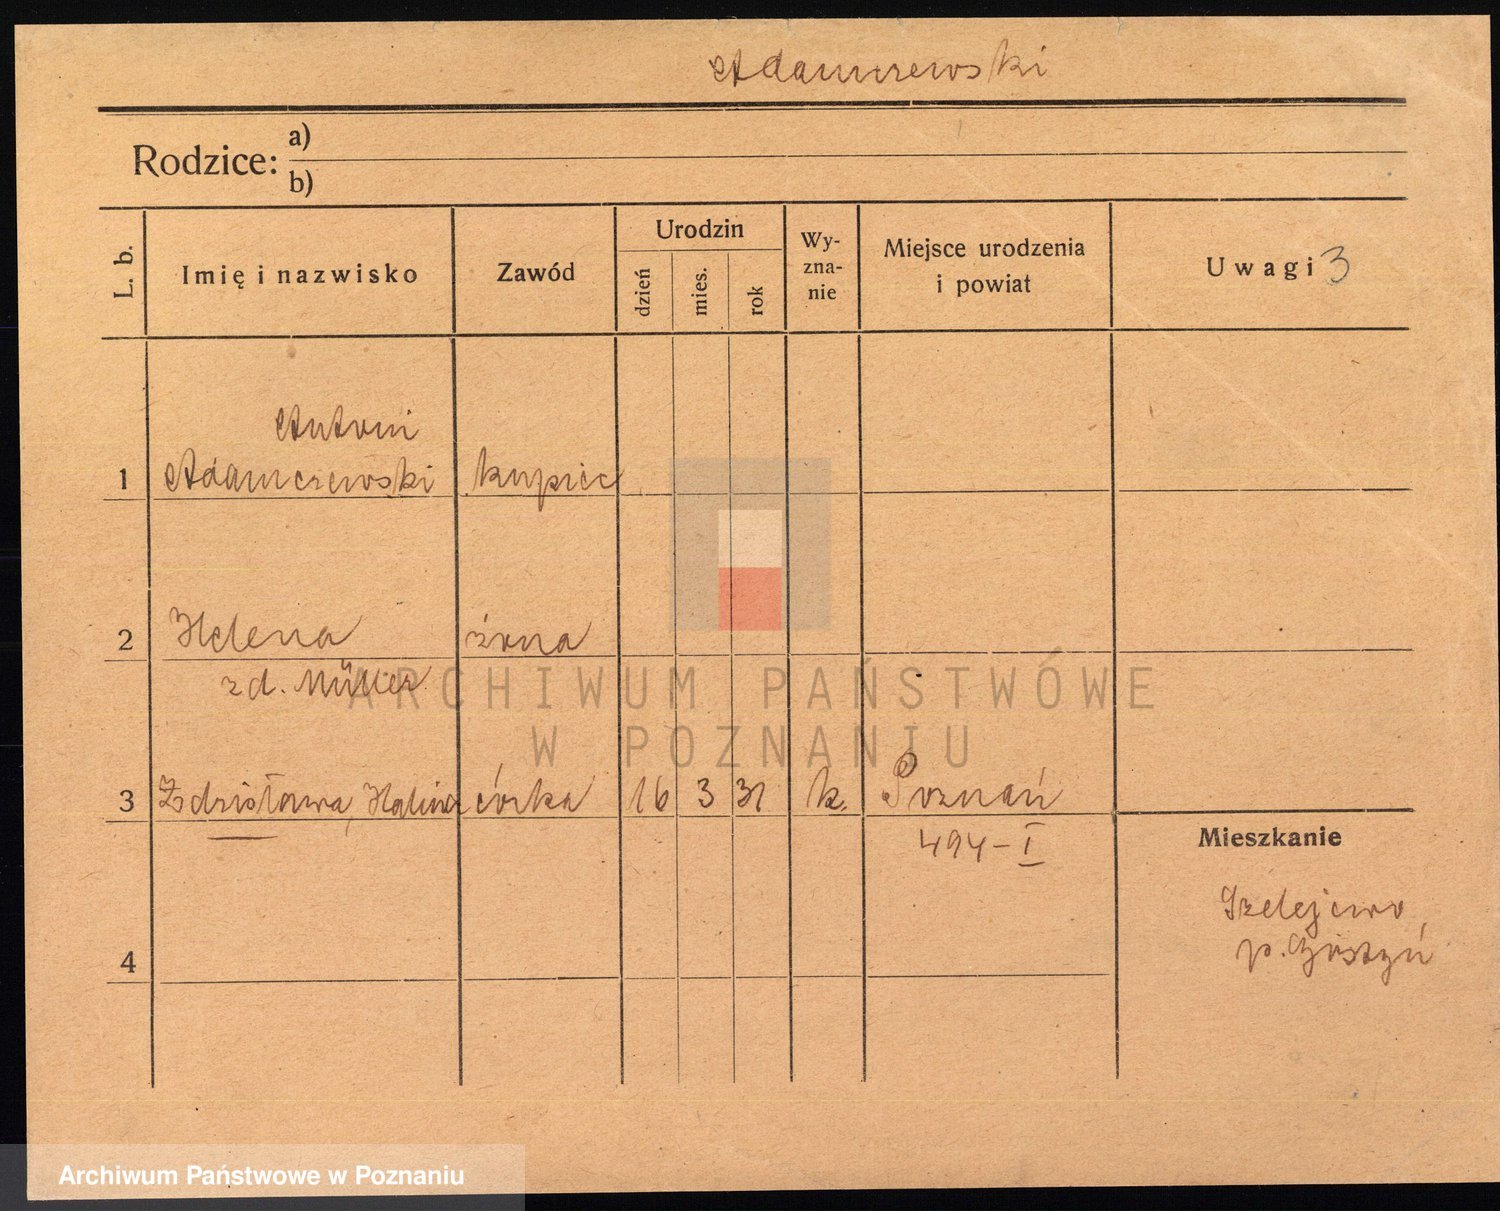 Adamczewski
Rodzice: a)
b)
L. b.
Imię i nazwisko
Zawód
Urodzin
dzień
mies.
rok
Wy-
zna-
nie
Miejsce urodzenia
i powiat
Uwagi 3
Antoni
1 Adamczewski kupiec
2 Helena żona
zd. Müller
3 Zdzisława, Halina córka 16 3 31 k. Poznań
494-I
Mieszkanie
Szelejewo
p. Gostyń
4
ARCHIWUM PAŃSTWOWE
W POZNANIU
Archiwum Państwowe w Poznaniu